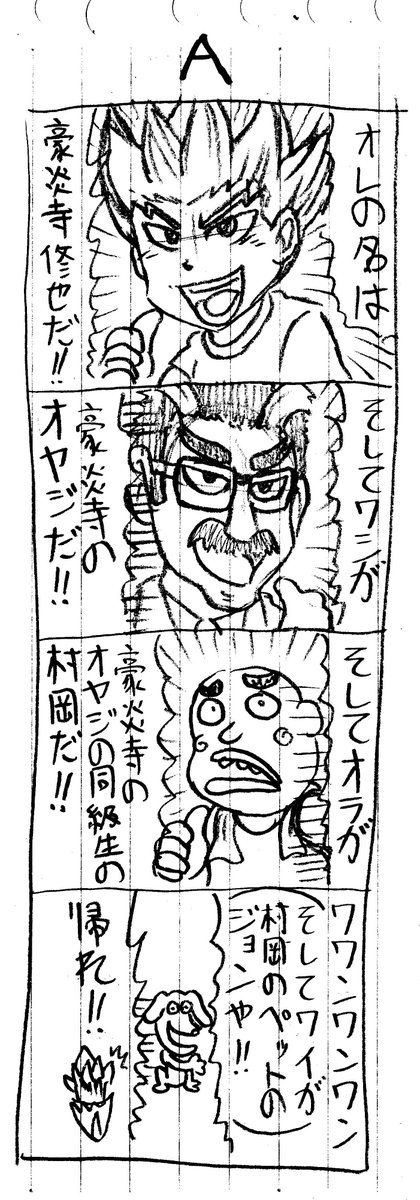 A
オレの名は、
豪炎寺修也だ!!
そしてワシが
豪炎寺の
オヤジだ!!
そしてオラが
豪炎寺の
オヤジの同級生の
村岡だ!!
ワワンワンワン
(そしてワイが
村岡のペットの
ジョンや!!)
帰れ!!